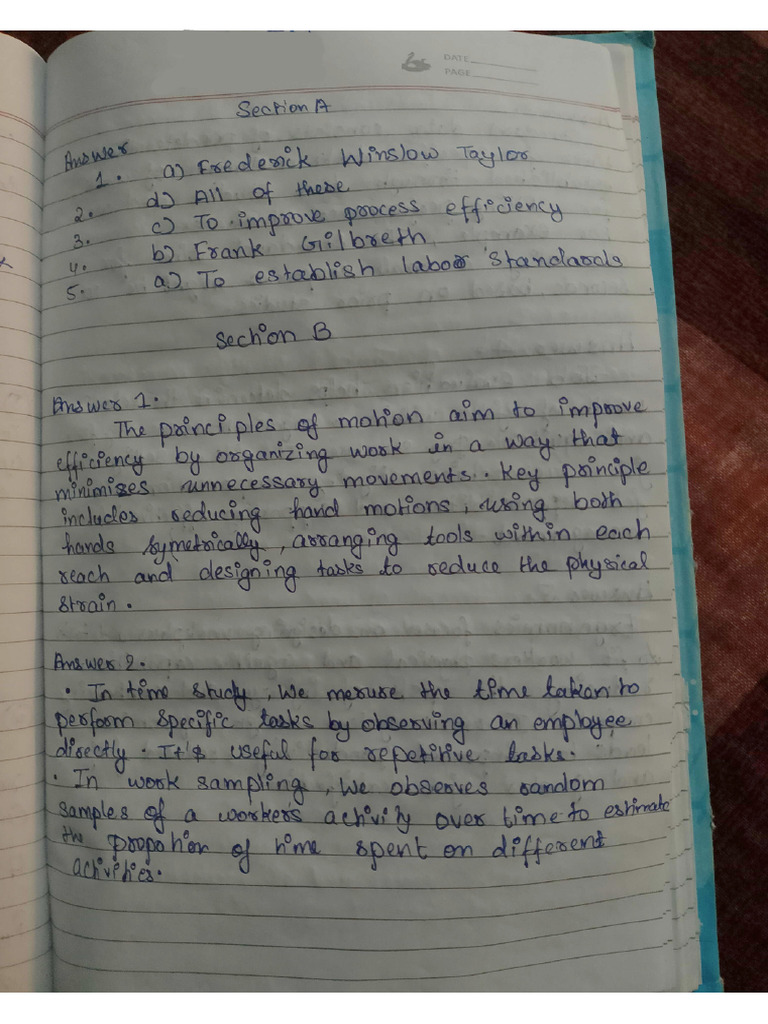 DATE
PAGE
Section A
Answer
1. a) Frederick Winslow Taylor
2. d) All of these
3. c) To improve process efficiency
4. b) Frank Gilbreth
5. a) To establish labor standards
Section B
Answer 1.
The principles of motion aim to improve
efficiency by organizing work in a way that
minimises unnecessary movements. Key principle
includes reducing hand motions, using both
hands symetrically, arranging tools within each
reach and designing tasks to reduce the physical
strain.
Answer 2.
• In time study, we mesure the time taken to
perform specific tasks by observing an employee
directly. It's useful for repetitive tasks.
• In work sampling, we observes random
samples of a workers activity over time to estimate
the propotion of time spent on different
activities.